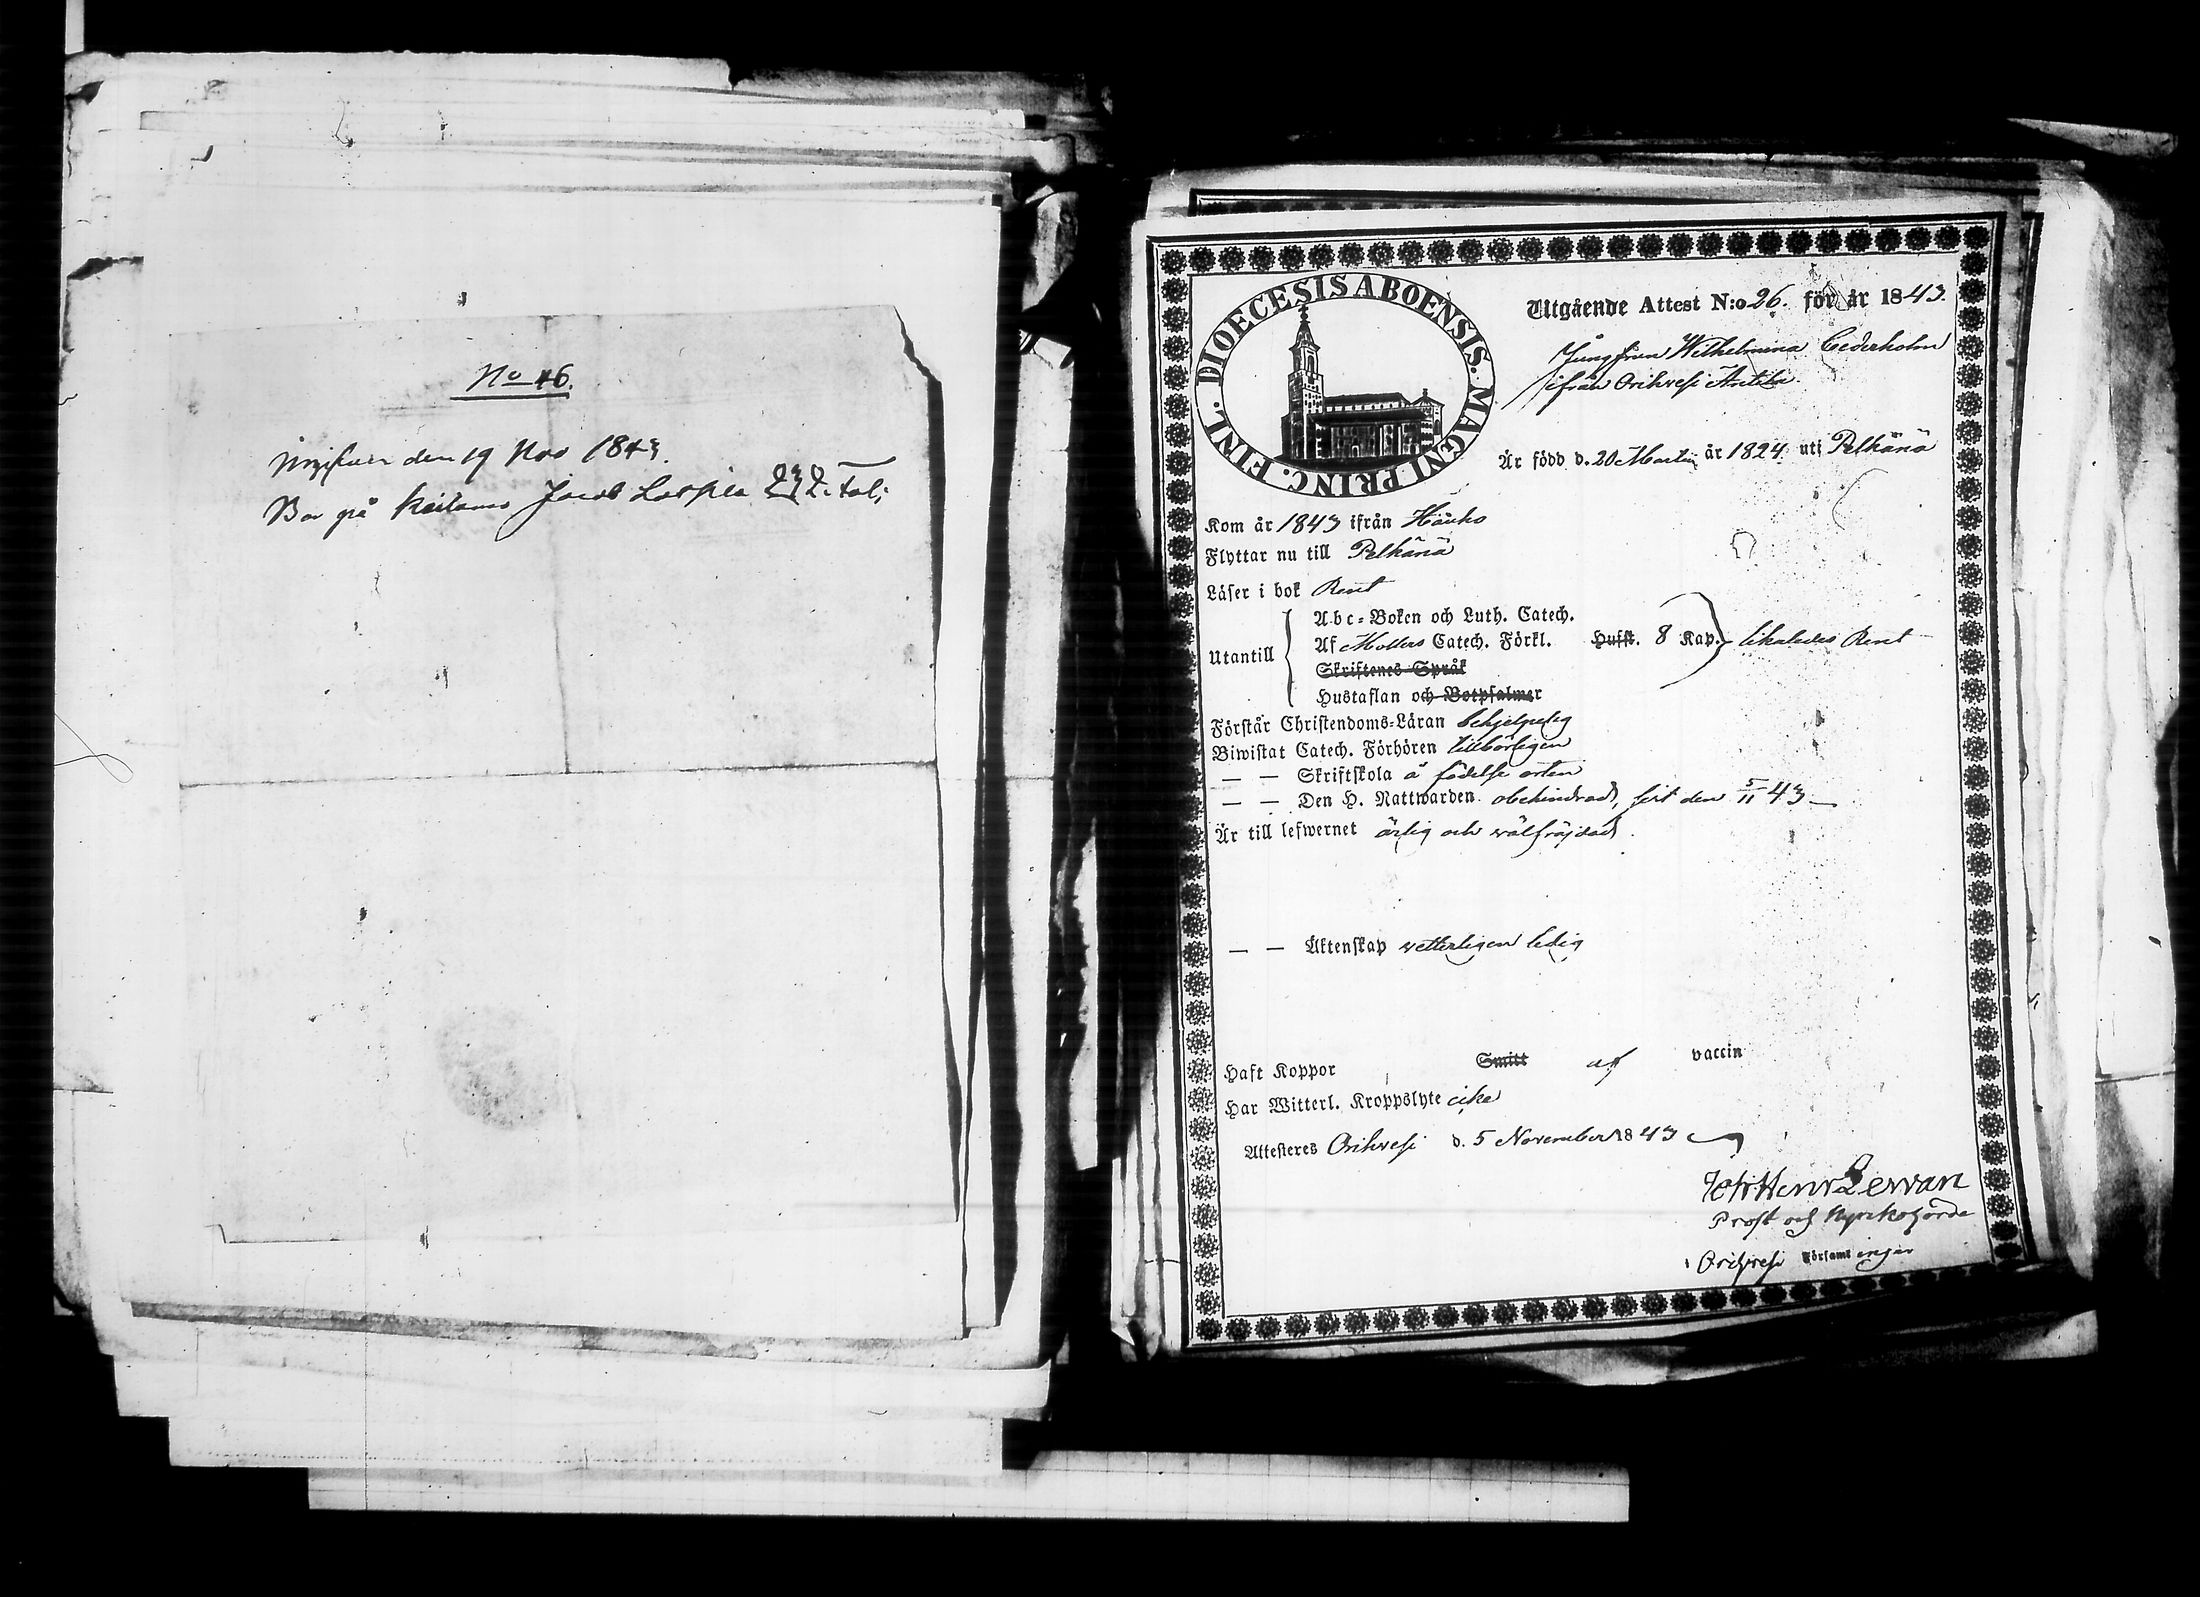 No 46.
den 19 Nov 1843.
Bor på Jacob 232. Fol:
DIOECESIS ABOENSIS. MAGNI PRINC. FINL.
Utgående Attest N:o 26. för år 1843.
Jungfrun Wilhelmina Cederholm
ifrån Orihvesi Anttila
Är född d. 20 Martii år 1824. uti Pelkänä
Kom år 1843 ifrån Hauho
Flyttar nu till Pelkänä
Läser i bok Rent
Abc-Boken och Luth. Catech.
Utantill Af Möllers Catech. Förkl. Hufst. 8 Kap. likaledes Rent
Skriftenes Språk
Hustaflan och Botpsalmer
Förstår Christendoms-Läran behjelpelig
Biwistat Catech. Förhören tillbörligen
— — Skriftskola å födelse orten
— — Den H. Nattwarden obehindrad, sist den 5/11 43 —
Är till lefwernet ärlig och välfräjdad.
— — Äktenskap vetterligen ledig
Haft Koppor Smitt af vaccin
Har Witterl. Kroppslyte icke
Attesteres Orihvesi d. 5 November 1843
Joh Henr Lervan
Prost och Kyrkoherde
i Orihvesi Församlingar